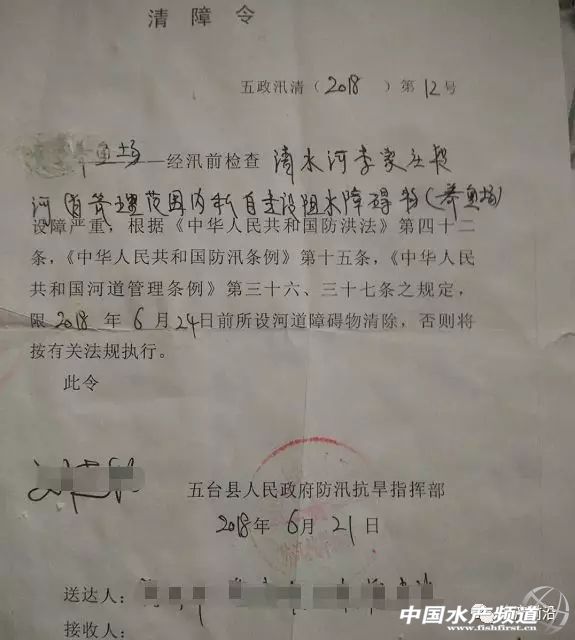 清障令
五政汛清（2018）第12号
鱼场—经汛前检查 清水河李家庄段
河道管理范围内私自建设阻水障碍物（养鱼场）
设障严重，根据《中华人民共和国防洪法》第四十二
条，《中华人民共和国防汛条例》第十五条，《中华人民
共和国河道管理条例》第三十六、三十七条之规定，
限2018年6月24日前所设河道障碍物清除，否则将
按有关法规执行。
此令
五台县人民政府防汛抗旱指挥部
2018年6月21日
送达人：
接收人：
中国水产频道
www.fishfirst.cn